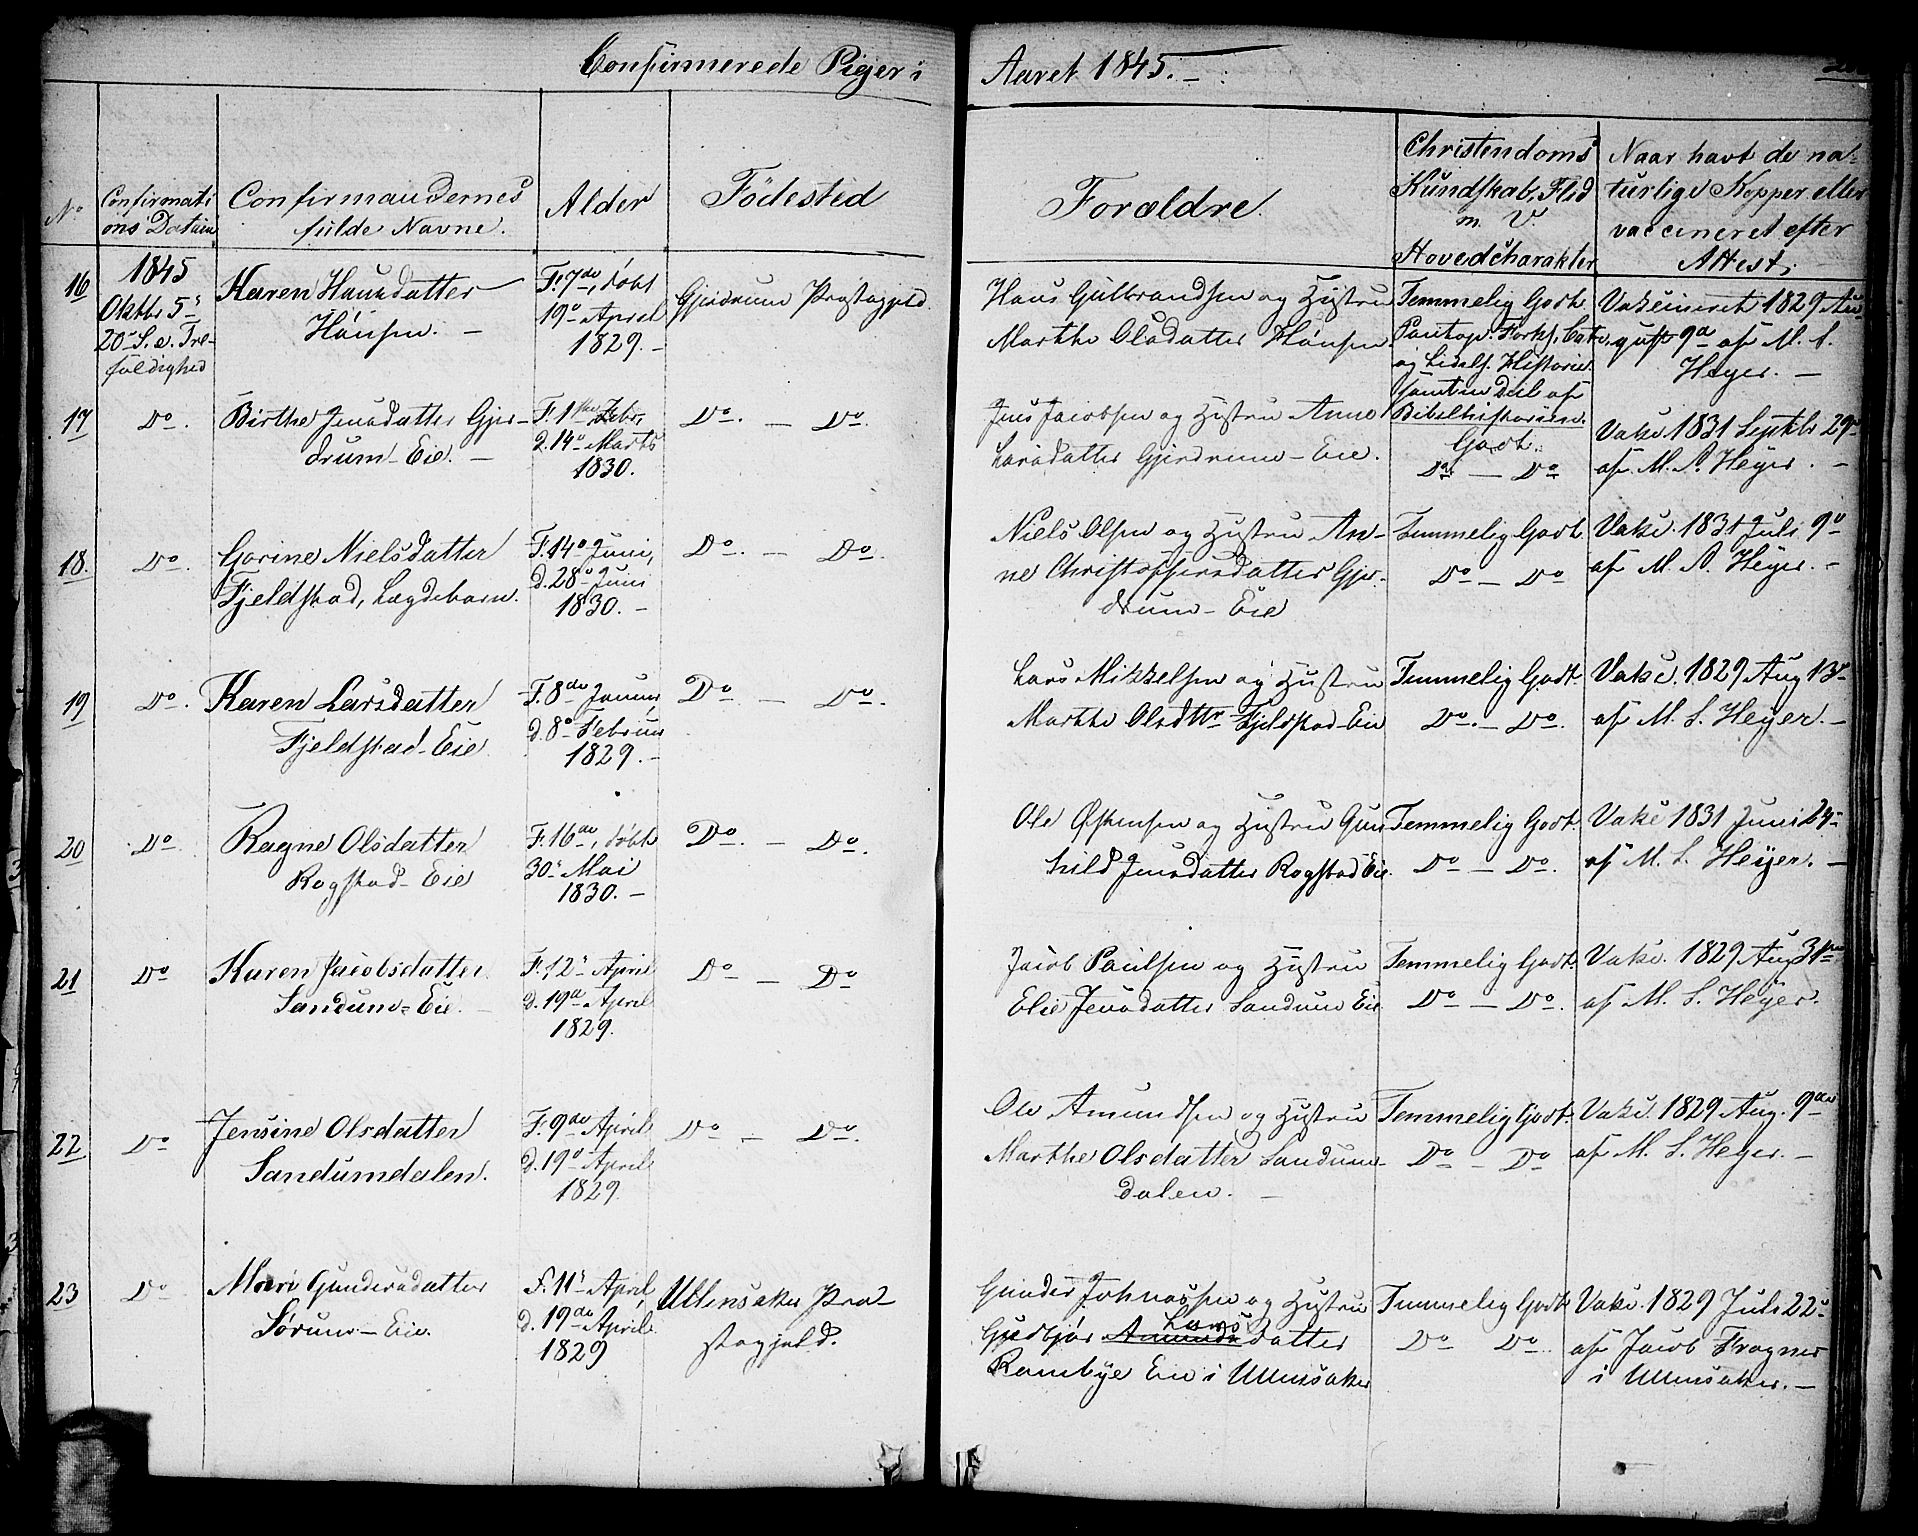 Confirmerede Piger i Aaret 1845.
No
Confirmati-
ons Datum
Confirmandernes
fulde Navne.
Alder
Fødested
Forældre.
Christendoms
Kundskab, Flid
m. V.
Hovedcharakter
Naar havt de na-
turlige Kopper eller
vaccineret efter
Attest;
16
1845
Oktbr 5
20 S. e. Tre-
foldighed
Karen Hansdatter
Hønsen. -
F. 7de, døbt
19 April
1829. -
Gjerdrum Prestegjeld.
Hans Gulbrandsen og Hustru
Marthe Olsdatter Hønsen
Temmelig Godt
Pontop. Forkl., Cate.
og Lidels. Historie
samt en Deel af
Bibelhistorien.
Godt.
Vakcineret 1829 Au-
gust 9 af M. S.
Heyer. -
17
Do.
Birthe Jensdatter Gjer-
drum-Eie. -
F. 1ste Febr,
d. 14 Marts
1830.
Do. - Do.
Jens Jacobsen og Hustru Anne
Larsdatter Gjerdrum-Eie.
Do - Do
Vakc 1831 Septbr 29
af M. S. Heyer. -
18.
Do.
Gorine Nielsdatter
Fjeldstad, Lægdebarn.
F. 14 Juni,
d. 28 Juni
1830. -
Do. - Do
Niels Olsen og Hustru An-
ne Christophersdatter Gjer-
drum-Eie
Temmelig Godt.
Do - Do
Vakc. 1831 Juli 9
af M. S. Heyer. -
19
Do.
Karen Larsdatter
Fjeldstad-Eie.
F. 8de Januar,
d. 8 Februar
1829. -
Do. - Do.
Lars Mikkelsen og Hustru
Marthe Olsdttr Fjeldstad-Eie
Temmelig Godt.
Do. - Do.
Vakc. 1829 Aug 13
af M. S. Heyer. -
20
Do.
Ragne Olsdatter
Rogstad-Eie
F. 16de, døbt
30 Mai
1830. -
Do. - Do.
Ole Østensen og Hustru Gun
hild Jensdatter Rogstad Eie.
Temmelig Godt.
Do - Do.
Vakc 1831 Juni 24
af M. S. Heyer. -
21
Do
Karen Jacobsdatter
Sandum-Eie.
F. 12 April
d. 19 April
1829.
Do - Do
Jacob Paulsen og Hustru
Elie Jensdatter Sandum Eie
Temmelig Godt.
Do - Do.
Vakc. 1829 Aug 31
af M. S. Heyer.
22
Do
Jensine Olsdatter
Sandumdalen.
F. 9de April
d. 19 April
1829.
Do - Do.
Ole Amundsen og Hustru
Marthe Olsdatter Sandum-
dalen. -
Temmelig Godt.
Do - Do
Vakc. 1829 Aug. 9de
af M. S. Heyer. -
23
Do
Mari Gundersdatter
Sørum-Eie.
F. 11 April,
d. 19de April
1829
Ullensaker Pre-
stegjeld.
Gunder Johnassen og Hustru
Lars
Gudbjør Amunds datter
Rambye Eie i Ullensaker
Temmelig Godt
Do Do.
Vakc. 1829 Juli 22
af Jacob Frogner
i Ullensaker. -